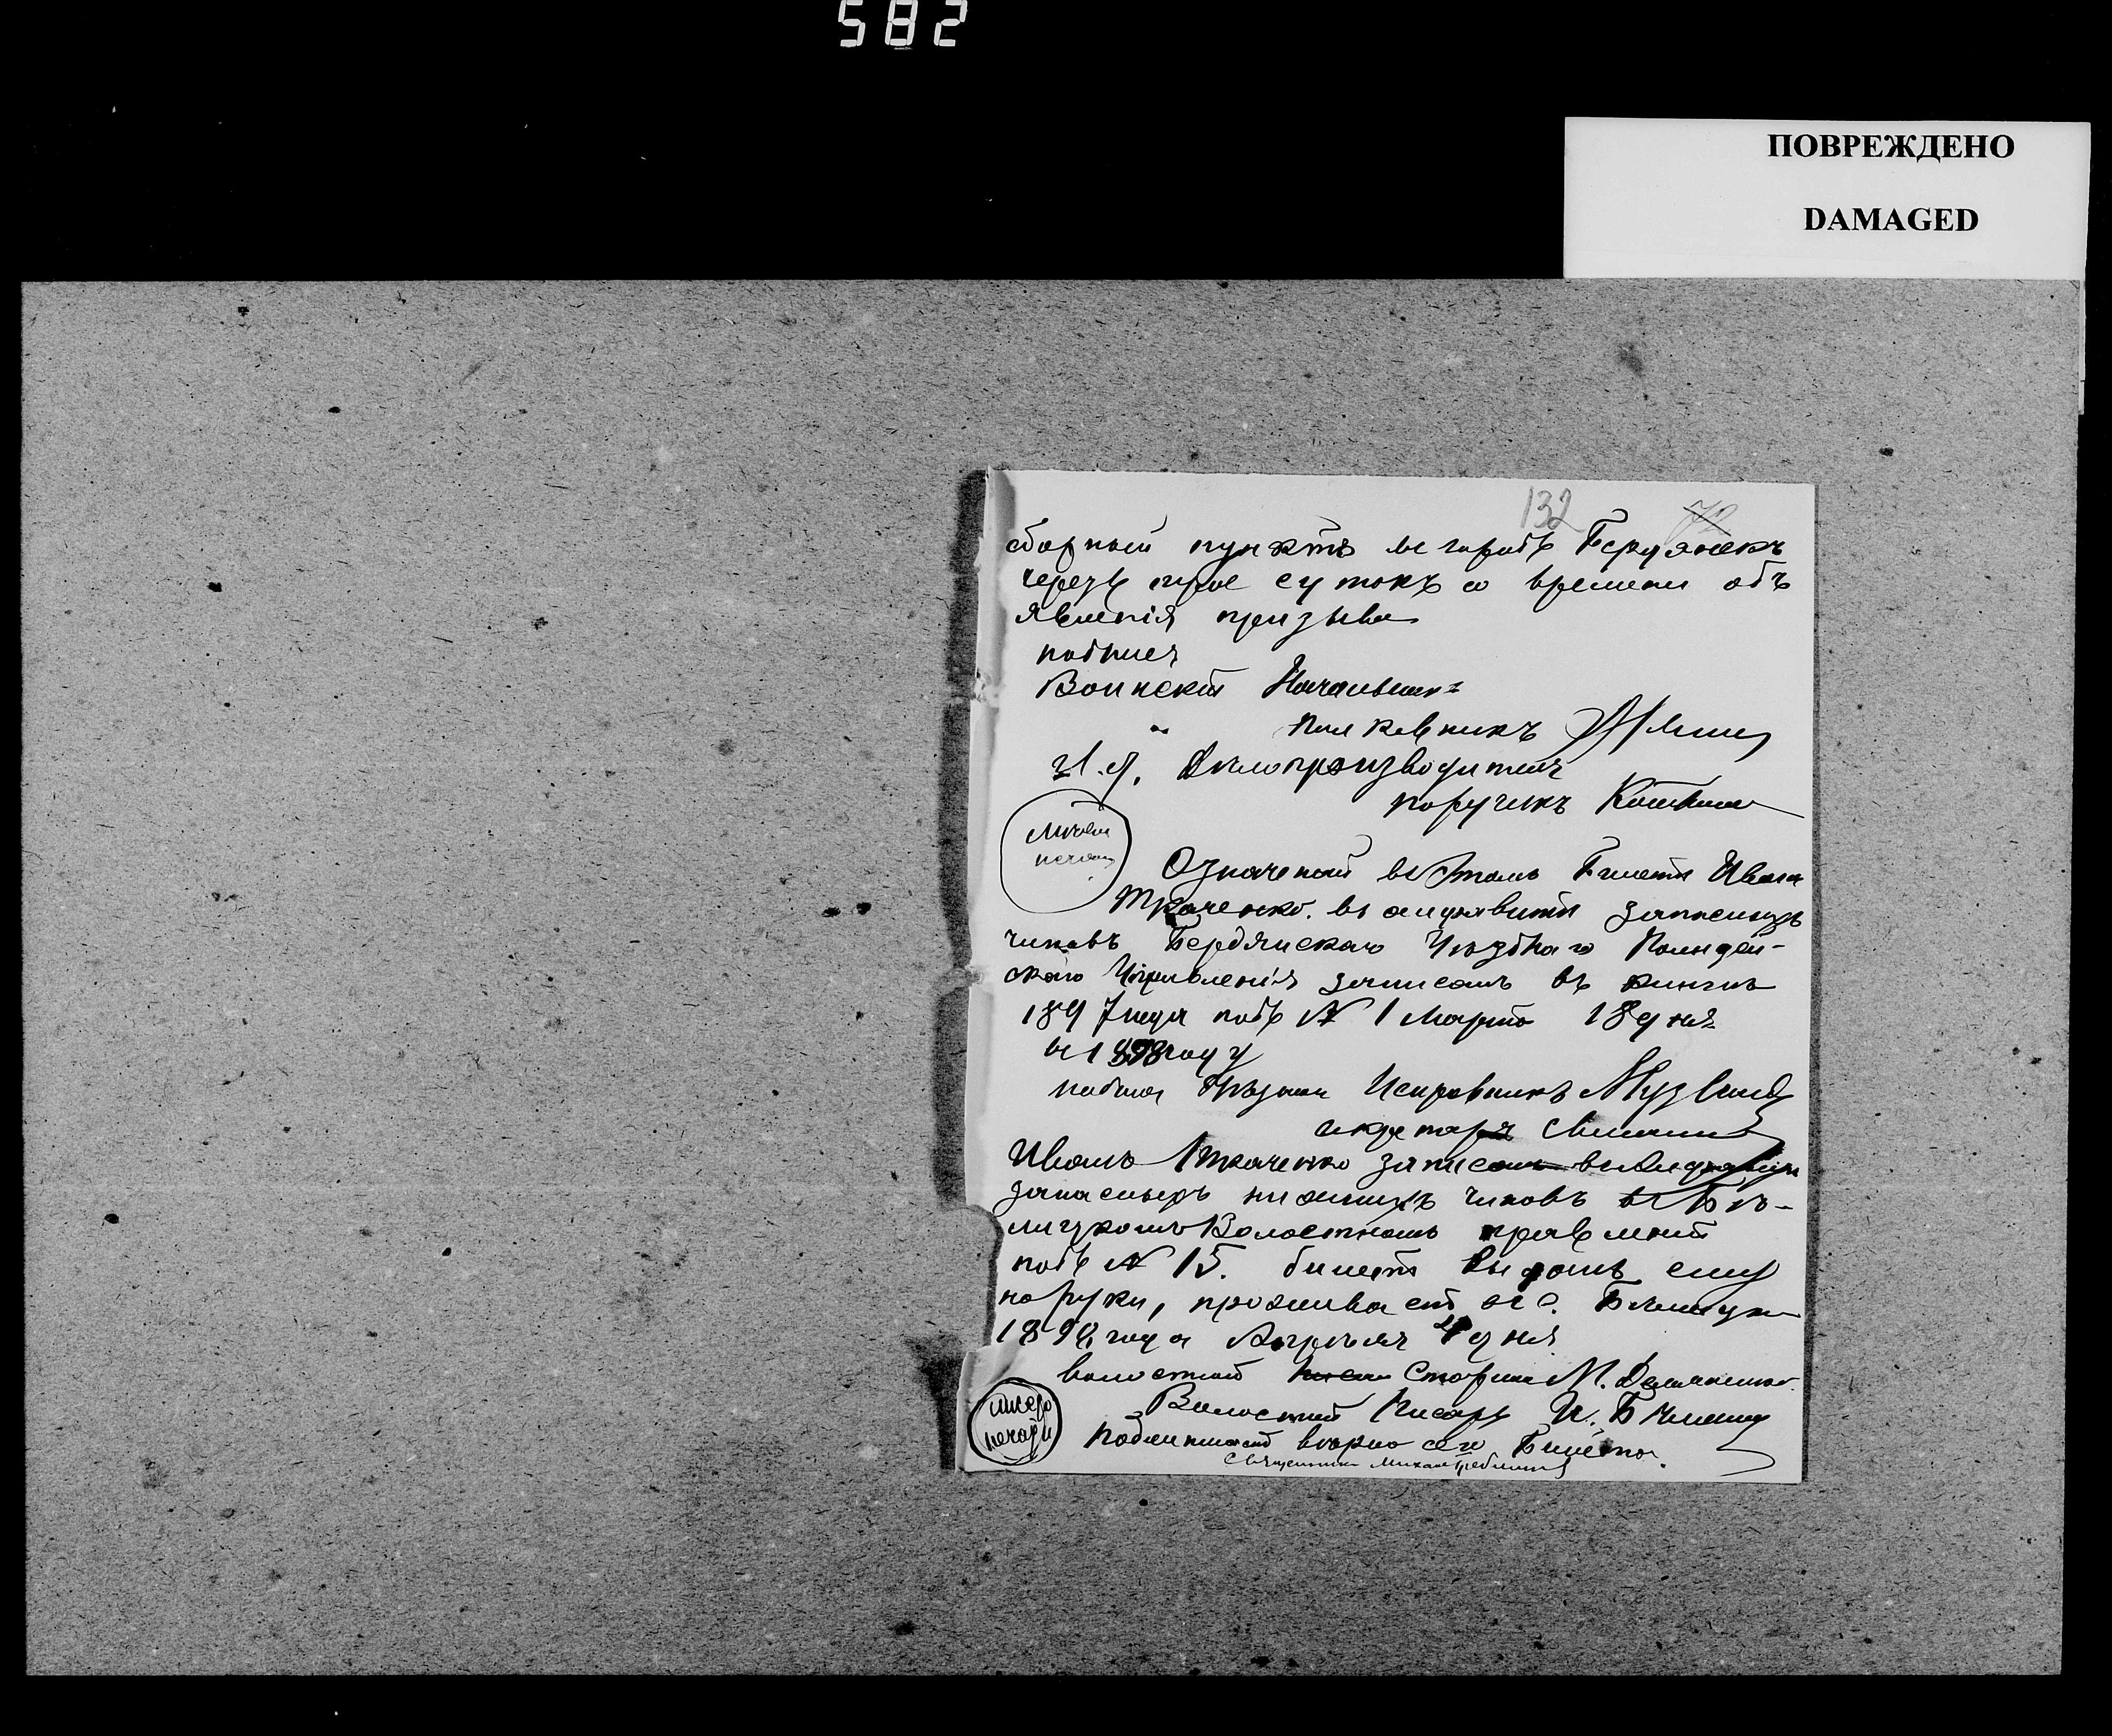 582
ПОВРЕЖДЕНО
DAMAGED
132
72
сборный пунктъ въ городѣ Бердянскѣ
черезъ трое сутокъ со времени объ
явленія призыва
подписи
Воинскій Начальникъ
полковникъ
И. д. Дѣлопроизводителя
поручикъ
Мѣсто
печати
Означенный въ этомъ Билетѣ Иванъ
Ткаченко въ алфавитѣ запасныхъ
чиновъ Бердянскаго Уѣзднаго Полицей-
скаго Управленія записанъ въ книгѣ
1897 года подъ № 1 Марта 18 дня
1898 году
подписи Уѣздный Исправникъ
секретарь
Иванъ Ткаченко записанъ въ Алфавитъ
запасныхъ нижнихъ чиновъ въ Бѣ-
лицкомъ Волостномъ правленіи
подъ № 15. билетъ выданъ ему
на руки, проживаетъ въ с.
1898 года Апрѣля 4 дня
волостной Старшина М.
Волостной Писарь И.
мѣсто
печати
подлинность вѣрно сего Билета.
Священникъ Михаилъ